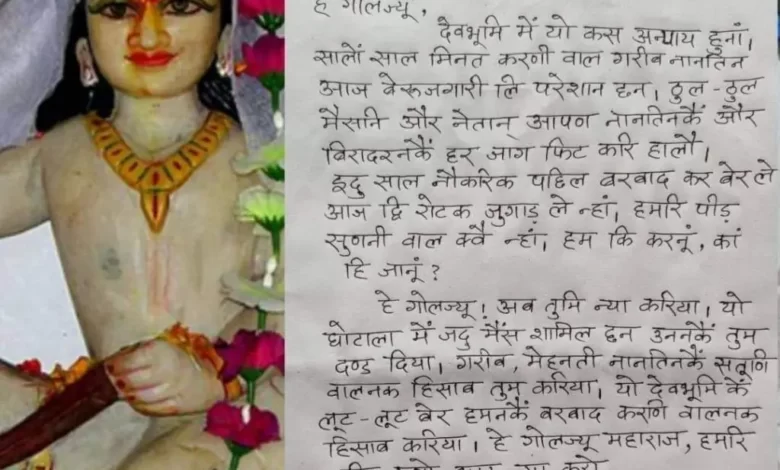 हे गोलज्यू,
देवभूमि में यो कस अन्याय हुनां,
सालों साल मिनत करणी वाल गरीब नानतिन
आज बेरुजगारी लि परेशान छन। ठुल-ठुल
मैंसनि और नेतान् आपण नानतिनकैं और
बिरादरनकैं हर जाग फिट करि हालौ।
इदु साल नौकरिक पछिल बरबाद कर बेर ले
आज द्वि रोटक जुगाड़ ले न्हां, हमरि पीड़
सुणनी वाल क्वै न्हां, हम कि करनूं, कां
हि जानूं?
हे गोलज्यू! अब तुमि न्या करिया, यो
घोटाला में जदु मैंस शामिल छन उननकैं तुम
दण्ड दिया। गरीब, मेहनती नानतिनकैं सतूणि
वालनक हिसाब तुम करिया, यो देवभूमि कैं
लूट-लूट बेर हमनकैं बरबाद करणि वालनक
हिसाब करिया। हे गोलज्यू महाराज, हमरि